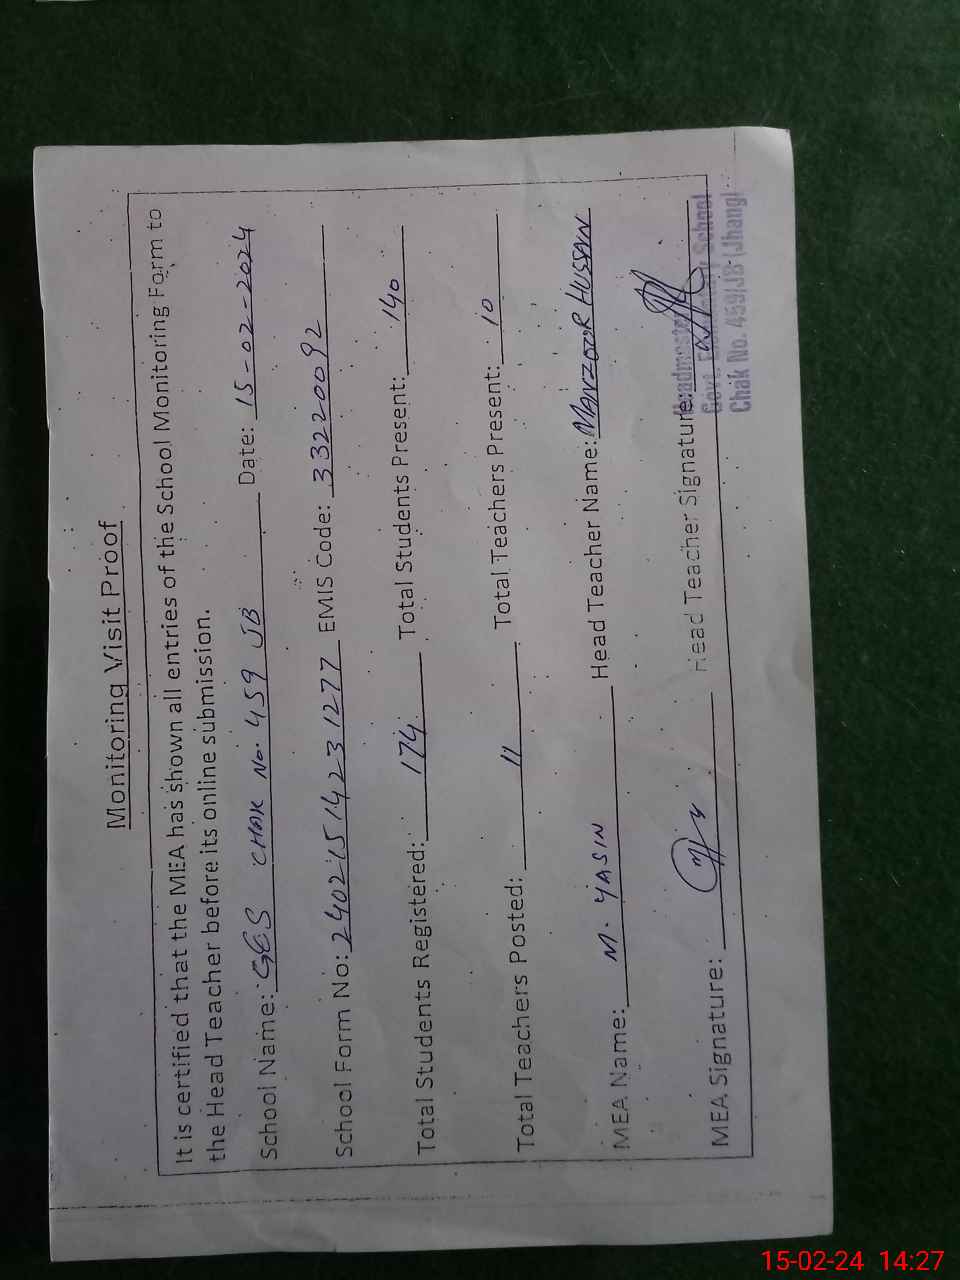 Monitoring Visit Proof
It is certified that the MEA has shown all entries of the School Monitoring Form to
the Head Teacher before its online submission.
School Name: GES CHAK No. 459 JB Date: 15-02-2024
School Form No: 24021514231277 EMIS Code: 33220092
Total Students Registered: 174 Total Students Present: 140
Total Teachers Posted: 11 Total Teachers Present: 10
MEA Name: M. YASIN Head Teacher Name: MANZOOR HUSSAIN
MEA Signature: Head Teacher Signature:
Headmaster
Govt. Elementary School
Chak No. 459/JB (Jhang)
15-02-24 14:27